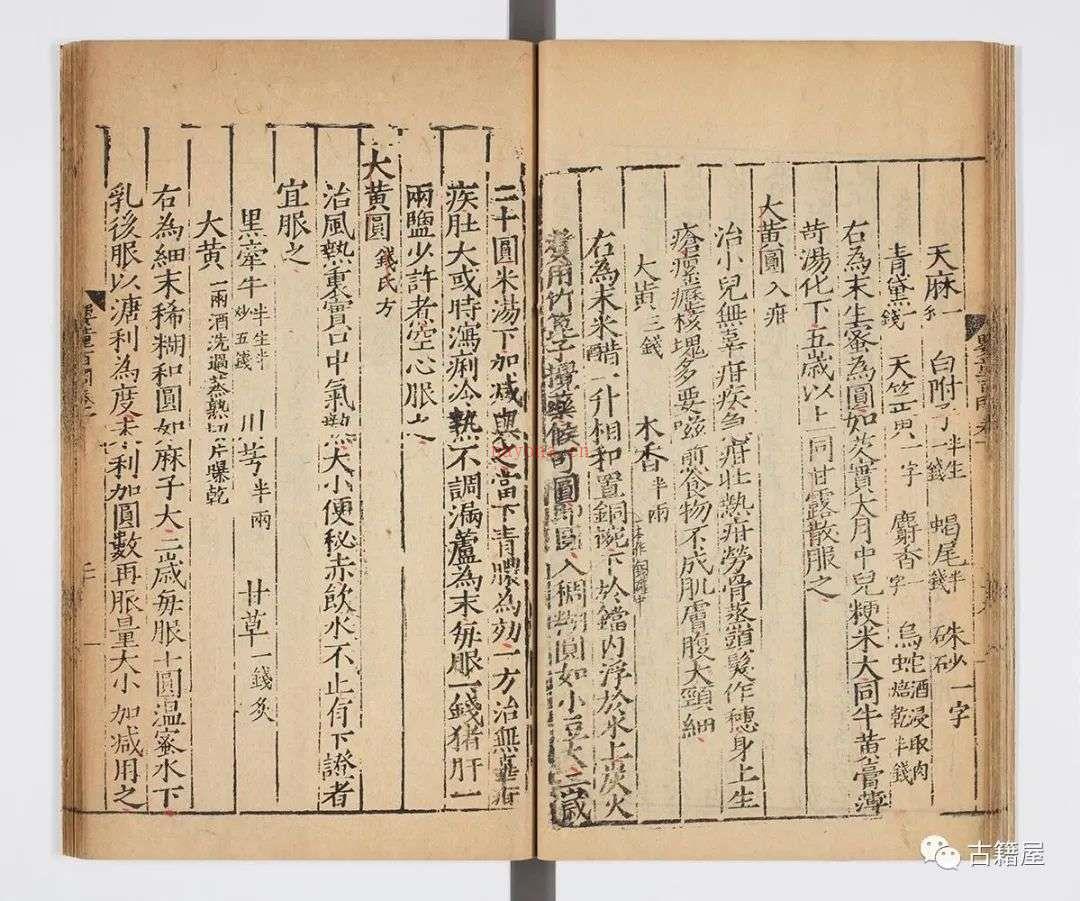 天麻一 白附子半生錢 蝎尾半錢 硃砂一字
青黛一錢 天竺黃一字 麝香一字 烏蛇酒浸取肉焙乾半錢
右為末生蜜為圓如芡實大月中兒粳米大同牛黃膏薄
荷湯化下五歲以上同甘露散服之
大黃圓入疳
治小兒無辜疳疾多疳壯熱疳勞骨蒸頭髮作穗身上生
瘡瘂癧核塊多要喫煎食物不成肌膚腹大頸細
大黃三錢 木香半兩
右為末米醋一升相和置銅碗下於鐺內浮於水上炭火
煑用竹箄子攪藥候可圓即圓入稠糊圓如小豆大二歲
二十圓米湯下加減與之當下青膿為効一方治無辜疳
疾肚大或時瀉痢冷熱不調漏蘆為末每服一錢猪肝一
兩鹽少許者空心服之
大黃圓錢氏方
治風熱裏實口中氣熱大小便秘赤飲水不止有下證者
宜服之
黑牽牛半生半炒五錢 川芎半兩 甘草一錢炙
大黃一兩酒洗過蒸熟切片曝乾
右為細末稀糊和圓如麻子大二歲每服十圓温蜜水下
乳後服以溏利為度未利加圓數再服量大小加減用之
nayona.cn
古籍屋